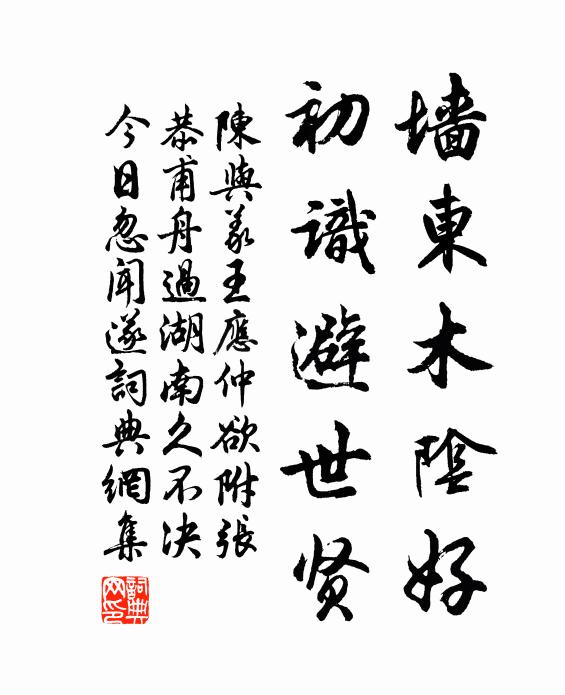 墙東木陰好
初識避世贤
陳與義王應仲欲附張
恭甫舟過湖南久不决
今日忽聞遂詞典網集
詞典网印